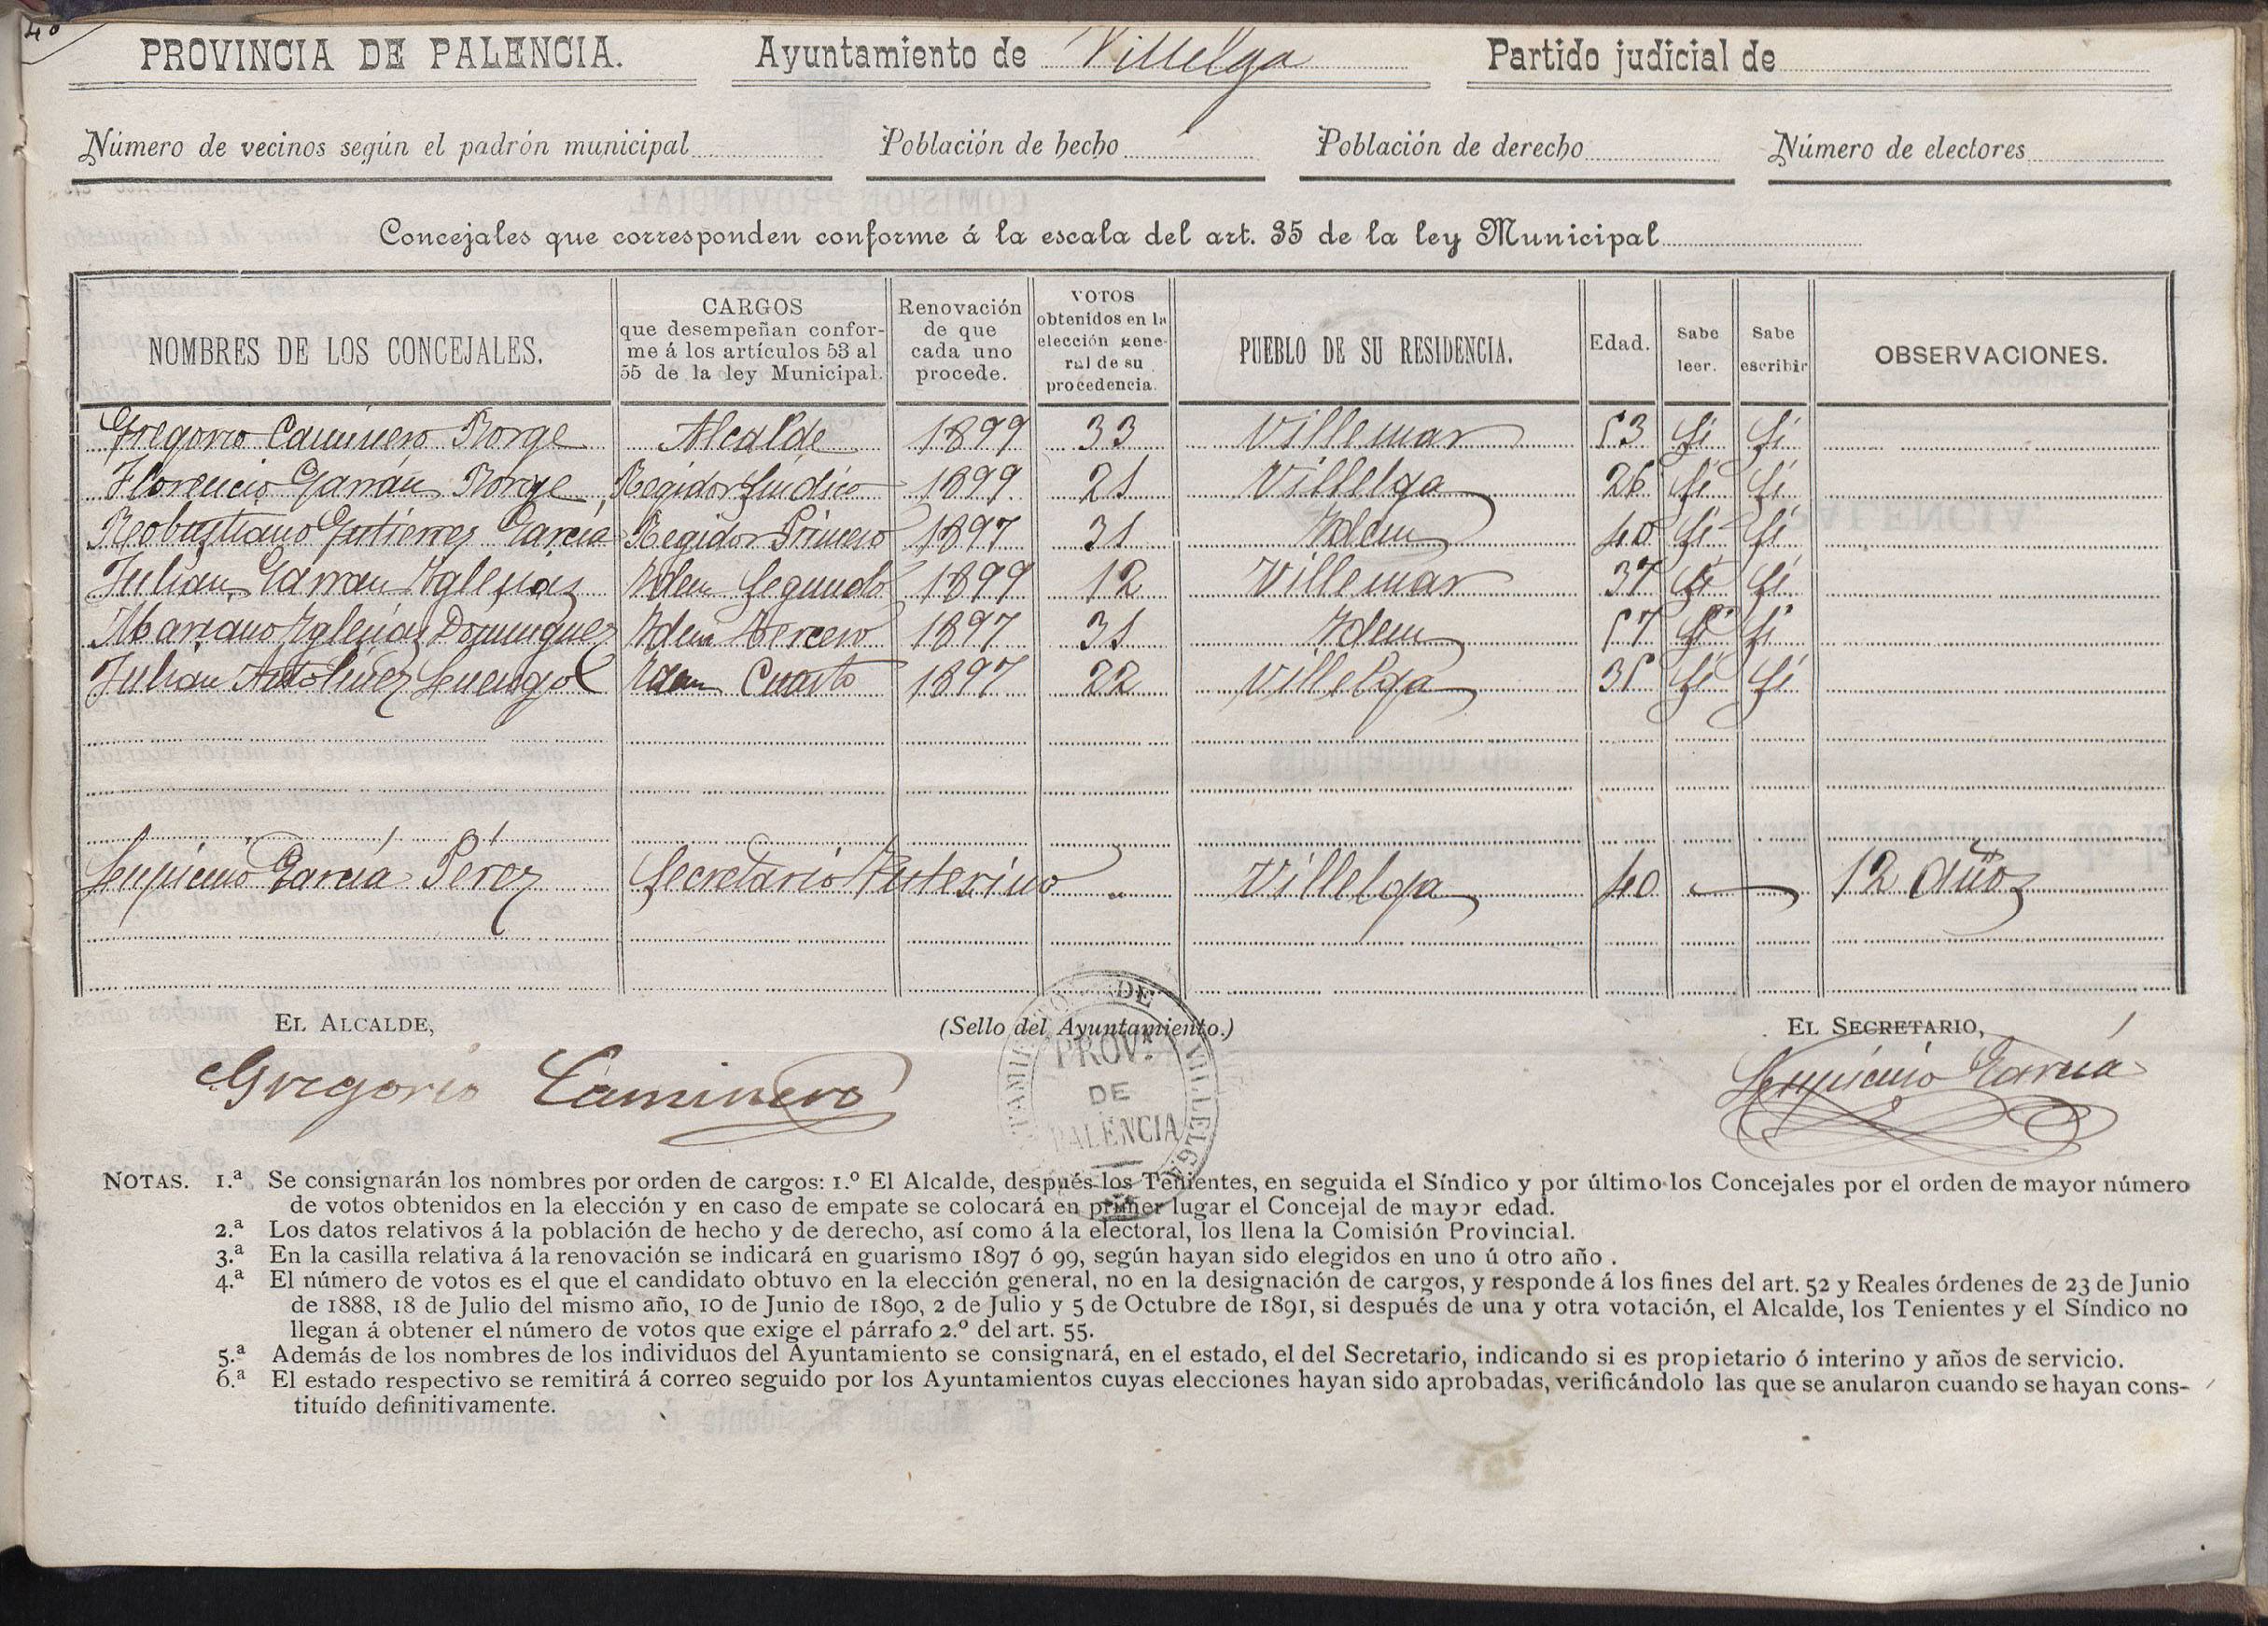 PROVINCIA DE PALENCIA. Ayuntamiento de Villelga Partido judicial de
Número de vecinos según el padrón municipal Población de hecho Población de derecho Número de electores
Concejales que corresponden conforme á la escala del art. 35 de la ley Municipal
NOMBRES DE LOS CONCEJALES. CARGOS que desempeñan confor- me á los artículos 53 al 55 de la ley Municipal. Renovación de que cada uno procede. VOTOS obtenidos en la elección gene- ral de su procedencia. PUEBLO DE SU RESIDENCIA. Edad. Sabe leer. Sabe escribir OBSERVACIONES.
Gregorio Caminero Borge Alcalde 1899 33 Villemar 53 Si Si
Florencio Garrán Borge Regidor Síndico 1899 21 Villelga 26 Si Si
Robustiano Gutierrez García Regidor Primero 1897 31 Idem 40 Si Si
Julian Garran Yglesias Idem Segundo 1899 12 Villemar 37 Si Si
Mariano Yglesias Dominguez Idem Tercero 1897 31 Idem 57 Si Si
Julian Antolinez Luengo Idem Cuarto 1897 22 Villelga 35 Si Si
Lupicinio García Pérez Secretario Interino " Villelga 40 12 Años
EL ALCALDE, (Sello del Ayuntamiento.) EL SECRETARIO,
Gregorio Caminero Lupicinio García
DE VILLELGA
PROV.ª
DE
PALENCIA
NOTAS. 1.ª Se consignarán los nombres por orden de cargos: 1.º El Alcalde, después los Tenientes, en seguida el Síndico y por último los Concejales por el orden de mayor número
de votos obtenidos en la elección y en caso de empate se colocará en primer lugar el Concejal de mayor edad.
2.ª Los datos relativos á la población de hecho y de derecho, así como á la electoral, los llena la Comisión Provincial.
3.ª En la casilla relativa á la renovación se indicará en guarismo 1897 ó 99, según hayan sido elegidos en uno ú otro año .
4.ª El número de votos es el que el candidato obtuvo en la elección general, no en la designación de cargos, y responde á los fines del art. 52 y Reales órdenes de 23 de Junio
de 1888, 18 de Julio del mismo año, 10 de Junio de 1890, 2 de Julio y 5 de Octubre de 1891, si después de una y otra votación, el Alcalde, los Tenientes y el Síndico no
llegan á obtener el número de votos que exige el párrafo 2.º del art. 55.
5.ª Además de los nombres de los individuos del Ayuntamiento se consignará, en el estado, el del Secretario, indicando si es propietario ó interino y años de servicio.
6.ª El estado respectivo se remitirá á correo seguido por los Ayuntamientos cuyas elecciones hayan sido aprobadas, verificándolo las que se anularon cuando se hayan cons-
tituído definitivamente.